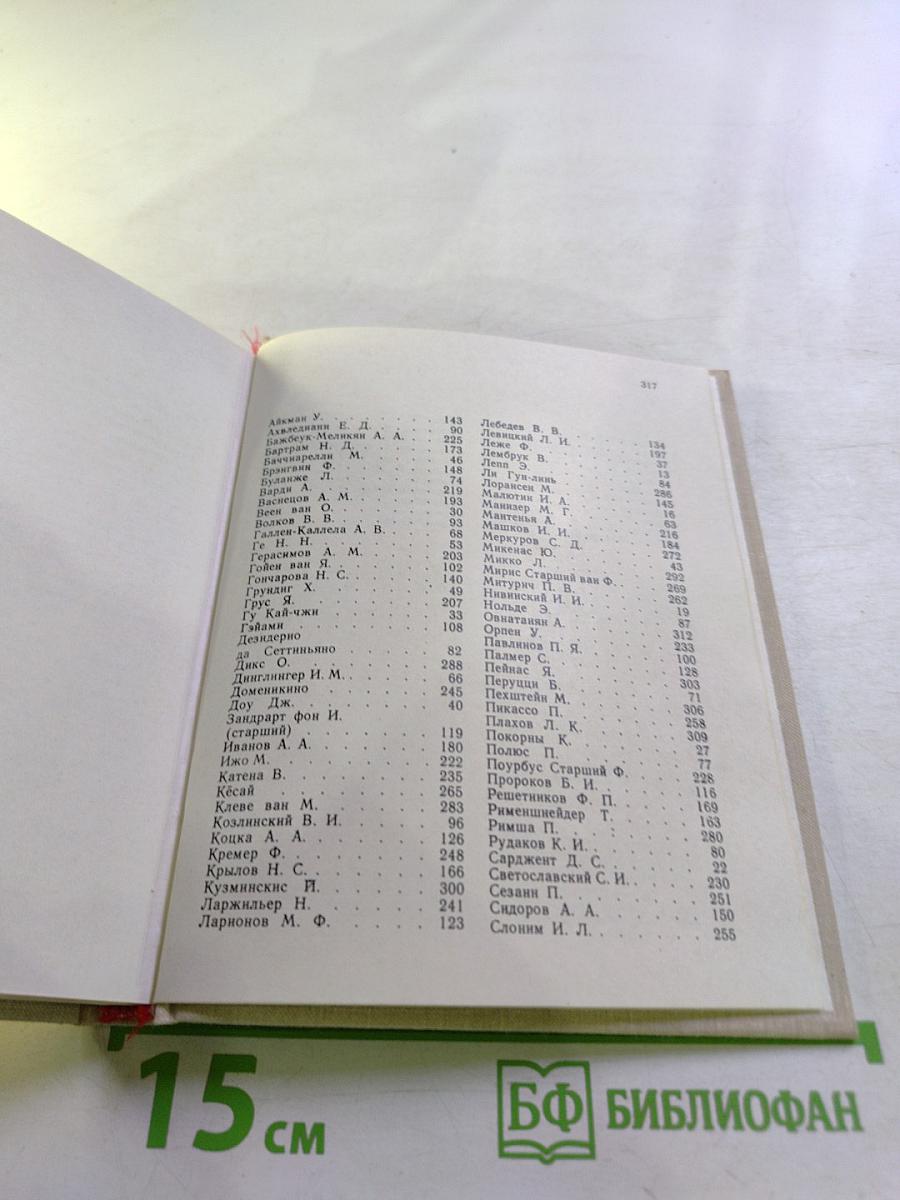 317
Айкман У. . . . . . . . 143
Ахвледиани Е. Д. . . . . 90
Бажбеук-Меликян А. А. . . 225
Бартрам Н. Д. . . . . . 173
Баччиарелли М. . . . . . 46
Брэнгвин Ф. . . . . . . 148
Буланже Л. . . . . . . 74
Варди А. . . . . . . . 219
Васнецов А. М. . . . . . 193
Веен ван О. . . . . . . 30
Волков В. В. . . . . . . 93
Галлен-Каллела А. В. . . . 68
Ге Н. Н. . . . . . . . 53
Герасимов А. М. . . . . . 203
Гойен ван Я. . . . . . . 102
Гончарова Н. С. . . . . . 140
Грундиг Х. . . . . . . 49
Грус Я. . . . . . . . 207
Гу Кай-чжи . . . . . . 33
Гэйами . . . . . . . 108
Дезидерио
да Сеттиньяно . . . . . 82
Дикс О. . . . . . . . 288
Динглингер И. М. . . . . . 66
Доменикино . . . . . . 245
Доу Дж. . . . . . . . 40
Зандрарт фон И.
(старший) . . . . . . 119
Иванов А. А. . . . . . . 180
Ижо М. . . . . . . . 222
Катена В. . . . . . . 235
Кёсай . . . . . . . 265
Клеве ван М. . . . . . 283
Козлинский В. И. . . . . 96
Коцка А. А. . . . . . . 126
Кремер Ф. . . . . . . 248
Крылов Н. С. . . . . . . 166
Кузминскис Й. . . . . . 300
Ларжильер Н. . . . . . 241
Ларионов М. Ф. . . . . 123
Лебедев В. В. . . . . . 134
Левицкий Л. И. . . . . . 197
Леже Ф. . . . . . . . 37
Лембрук В. . . . . . . 13
Лепп Э. . . . . . . . 84
Ли Гун-линь . . . . . . 286
Лорансен М. . . . . . . 145
Малютин И. А. . . . . . 16
Манизер М. Г. . . . . . 63
Мантенья А. . . . . . . 216
Машков И. И. . . . . . . 184
Меркуров С. Д. . . . . . 272
Микенас Ю. . . . . . . 43
Микко Л. . . . . . . . 292
Мирис Старший ван Ф. . . . 269
Митурич П. В. . . . . . 262
Нивинский И. И. . . . . . 19
Нольде Э. . . . . . . . 87
Овнатанян А. . . . . . . 312
Орпен У. . . . . . . . 233
Павлинов П. Я. . . . . . 100
Палмер С. . . . . . . . 128
Пейнас Я. . . . . . . . 303
Перуцци Б. . . . . . . 71
Пехштейн М. . . . . . . 306
Пикассо П. . . . . . . 258
Плахов Л. К. . . . . . . 309
Покорны К. . . . . . . 27
Полюс П. . . . . . . . 77
Поурбус Старший Ф. . . . . 228
Пророков Б. И. . . . . . 116
Решетников Ф. П. . . . . . 169
Рименшнейдер Т. . . . . . 163
Римша П. . . . . . . . 280
Рудаков К. И. . . . . . . 80
Сарджент Д. С. . . . . . 22
Светославский С. И. . . . . 230
Сезанн П. . . . . . . . 251
Сидоров А. А. . . . . . 150
Слоним И. Л. . . . . . . 255
15 см
БФ БИБЛИОФАН